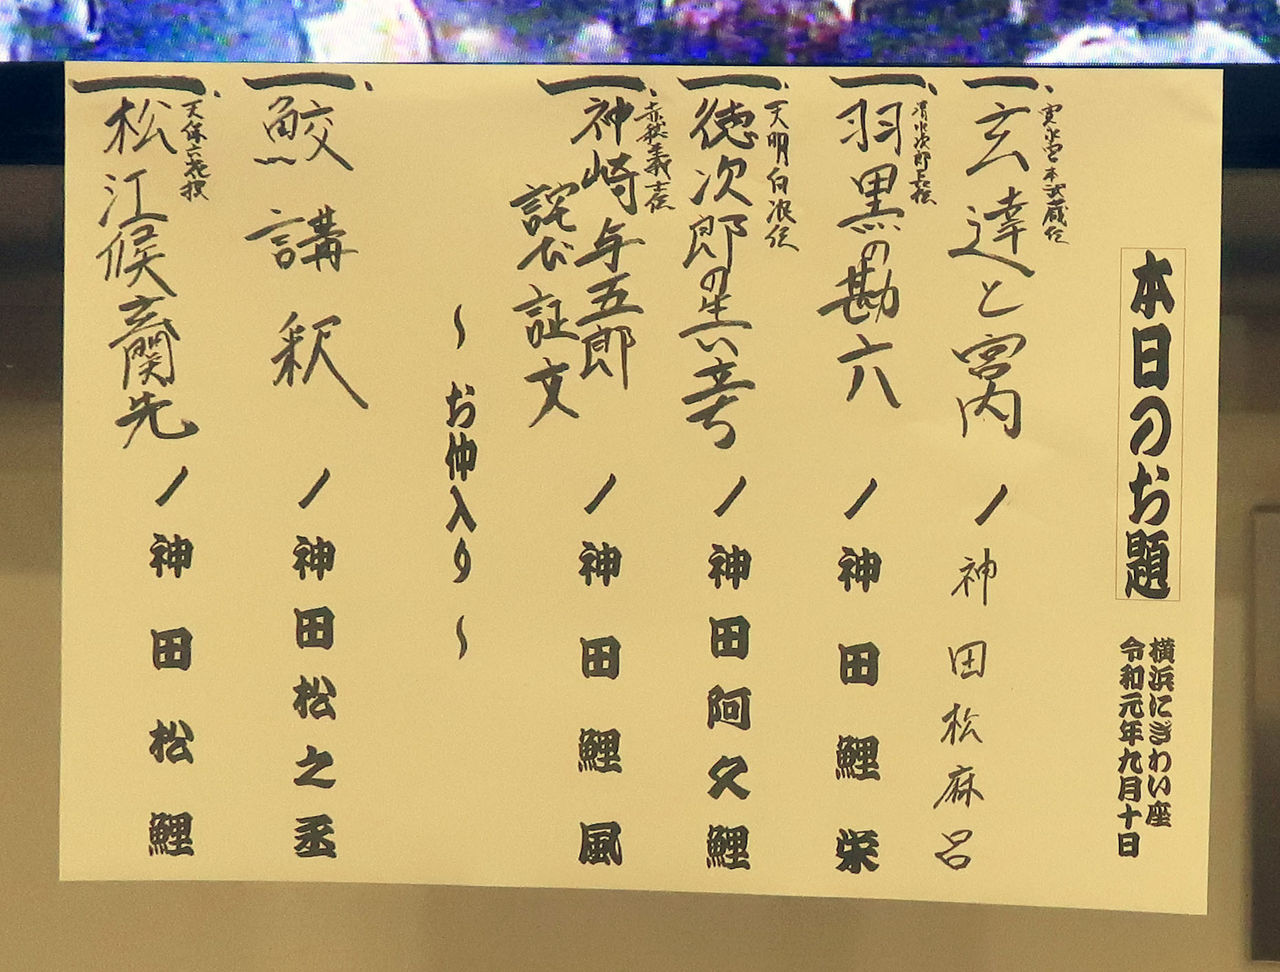 本日のお題
横浜にぎわい座
令和元年九月十日
一、寛永宮本武蔵伝
玄達と宮内 ノ 神田松麻呂
一、清水次郎長伝
羽黒の勘六 ノ 神田鯉栄
一、天明白浪伝
徳次郎の生い立ち ノ 神田阿久鯉
一、赤穂義士伝
神崎与五郎
詫び証文 ノ 神田鯉風
〜お仲入り〜
一、鮫講釈 ノ 神田松之丞
一、天保六花撰
松江候玄関先 ノ 神田松鯉